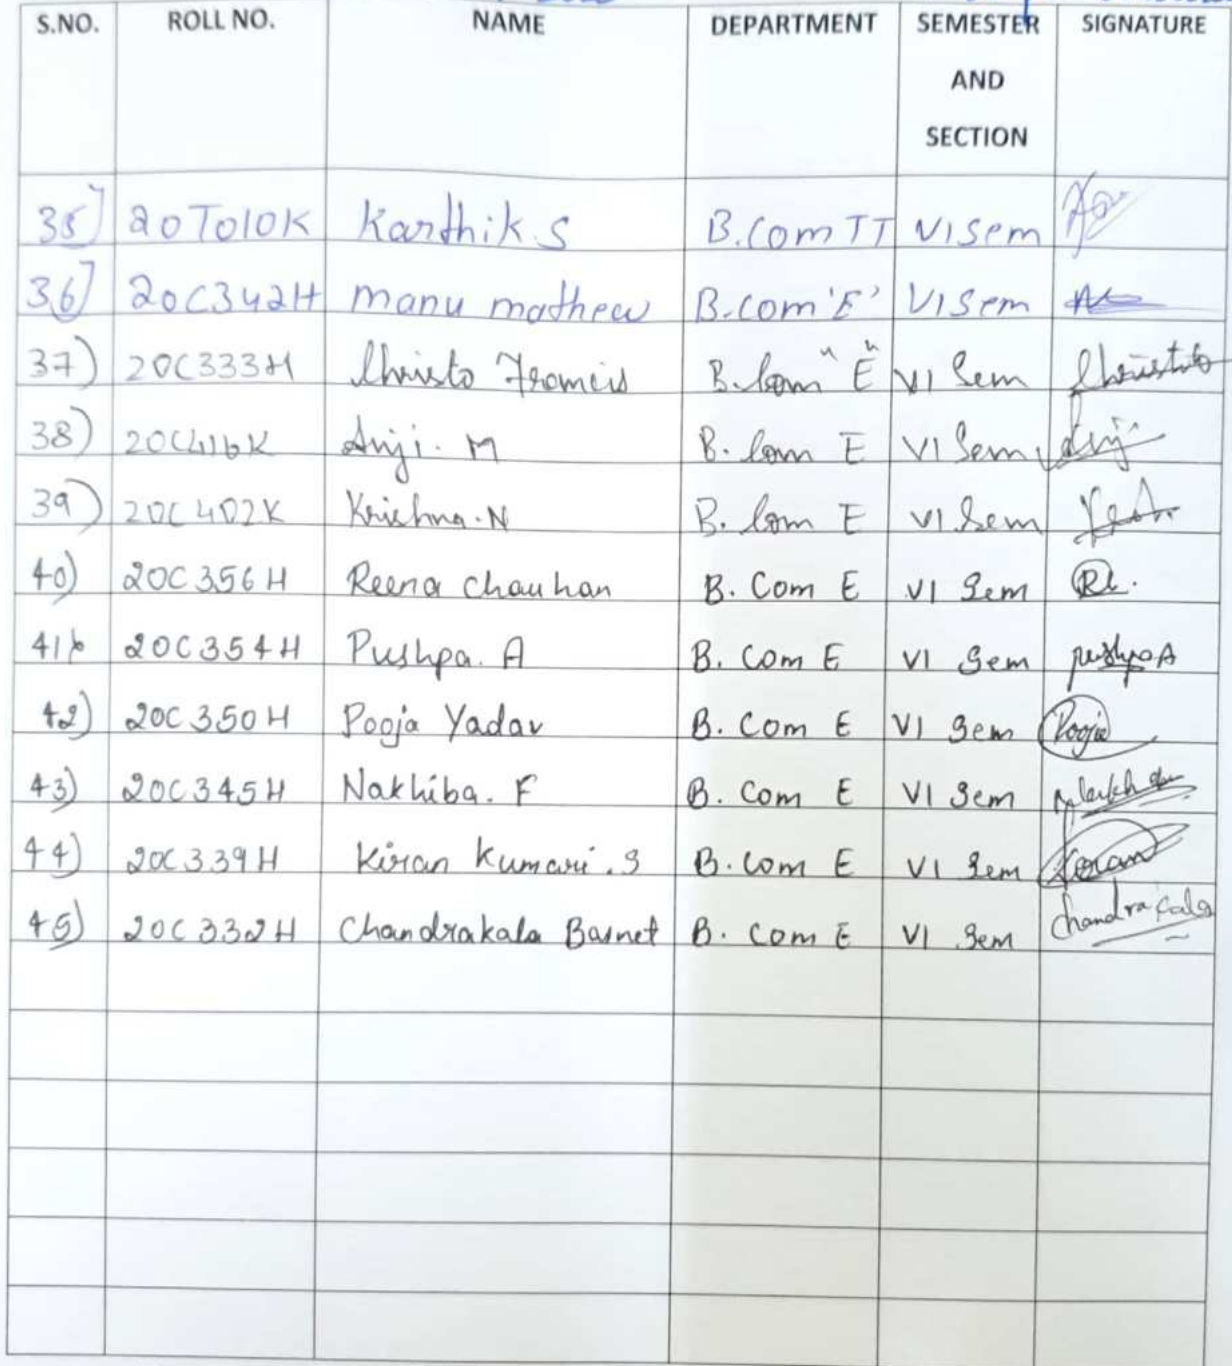 S.NO. ROLL NO. NAME DEPARTMENT SEMESTER AND SECTION SIGNATURE
35) 20T010K Karthik.S B.Com TT VI Sem
36) 20C342H manu mathew B.com 'E' VI Sem
37) 20C333H Christo Francis B.Com "E" VI Sem Christo
38) 20C416K Anji. M B. Com E VI Sem Anji
39) 20C402K Krishna.N B. Com E VI Sem
40) 20C356H Reena Chauhan B. Com E VI Sem
41) 20C354H Pushpa. A B. Com E VI Sem pushpa A
42) 20C350H Pooja Yadav B. Com E VI Sem Pooja
43) 20C345H Nakhiba. F B. Com E VI Sem
44) 20C339H Kiran Kumari .S B. Com E VI Sem Kiran
45) 20C332H Chandrakala Basnet B. Com E VI Sem Chandrakala